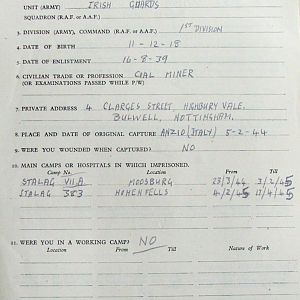 UNIT (ARMY) IRISH GUARDS
SQUADRON (R.A.F. or A.A.F.)
3. DIVISION (ARMY), COMMAND (R.A.F. or A.A.F.) 1ST DIVISION
4. DATE OF BIRTH 11-12-18
5. DATE OF ENLISTMENT 16-8-39
6. CIVILIAN TRADE OR PROFESSION COAL MINER
(OR EXAMINATIONS PASSED WHILE P/W)
7. PRIVATE ADDRESS 4 CLARGES STREET, HIGHBURY VALE,
BULWELL, NOTTINGHAM.
8. PLACE AND DATE OF ORIGINAL CAPTURE ANZIO (ITALY) 5-2-44
9. WERE YOU WOUNDED WHEN CAPTURED? NO
10. MAIN CAMPS OR HOSPITALS IN WHICH IMPRISONED.
Camp No. Location From Till
STALAG VIIA MOOSBURG 28/3/44 3/2/45
STALAG 383 HOHENFELS 4/2/45 17/4/45
11. WERE YOU IN A WORKING CAMP? NO
Location From Till Nature of Work